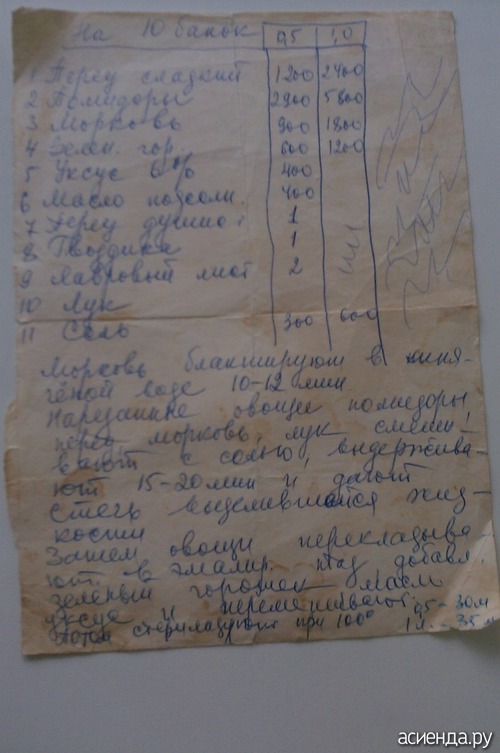 На 10 банок 0,5 1,0
1 Перец сладкий 1200 2400
2 Помидоры 2900 5800
3 Морковь 900 1800
4 Зелен. гор. 600 1200
5 Уксус 6% 400
6 Масло подсолн. 400
7 Перец душис. 1
8 Гвоздика 1
9 Лавровый лист 2
10 Лук
11 Соль 300 600
Морковь бланшируют в кипя-
чёной воде 10-12 мин
Нарезанные овощи помидоры,
перец, морковь, лук смеши-
вают с солью, выдержива-
ют 15-20 мин и дают
стечь выделившейся жид-
кости
Затем овощи перекладыва-
ют в эмалир. таз добавл.
зеленый горошек масло
уксус и перемешивают.
Потом стерилизуют при 100° 0,5-30м
1 л. - 35 м
асиенда.ру